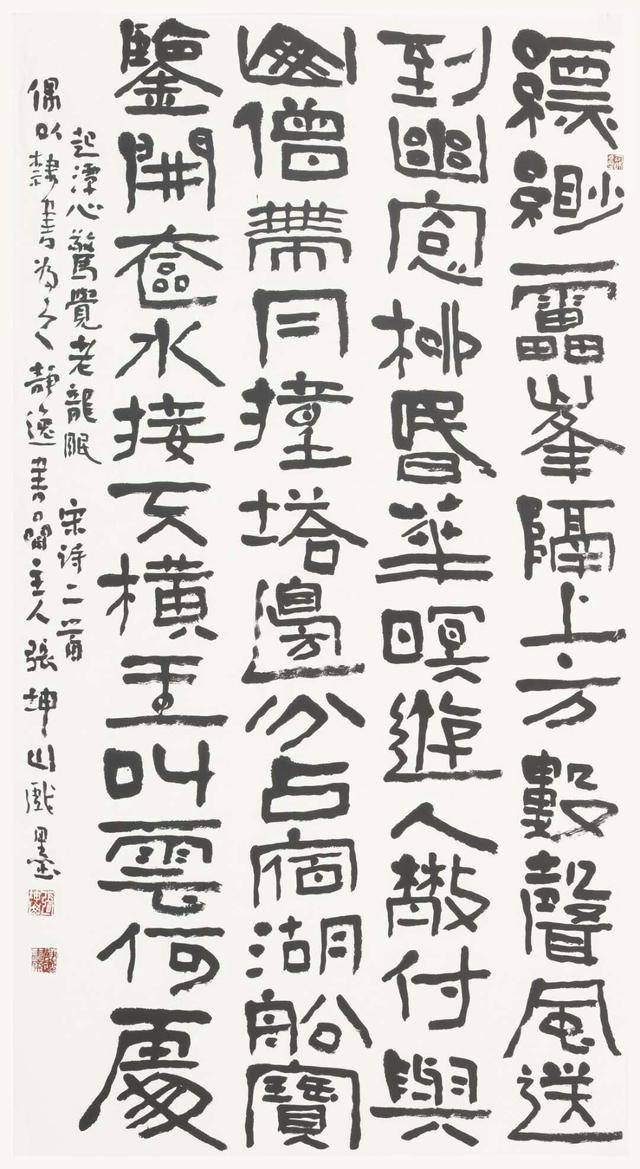 縹緲雷峯隔上方數聲風送
到幽窓柳昏華暝遊人散付與
僧帶月撞塔邊分占宿湖船寶
鑒開奩水接天橫玉叫雲何處
起潭心驚覺老龍眠 宋詩二首
偶以隸書為之靜逸書閣主人張坤山戲墨